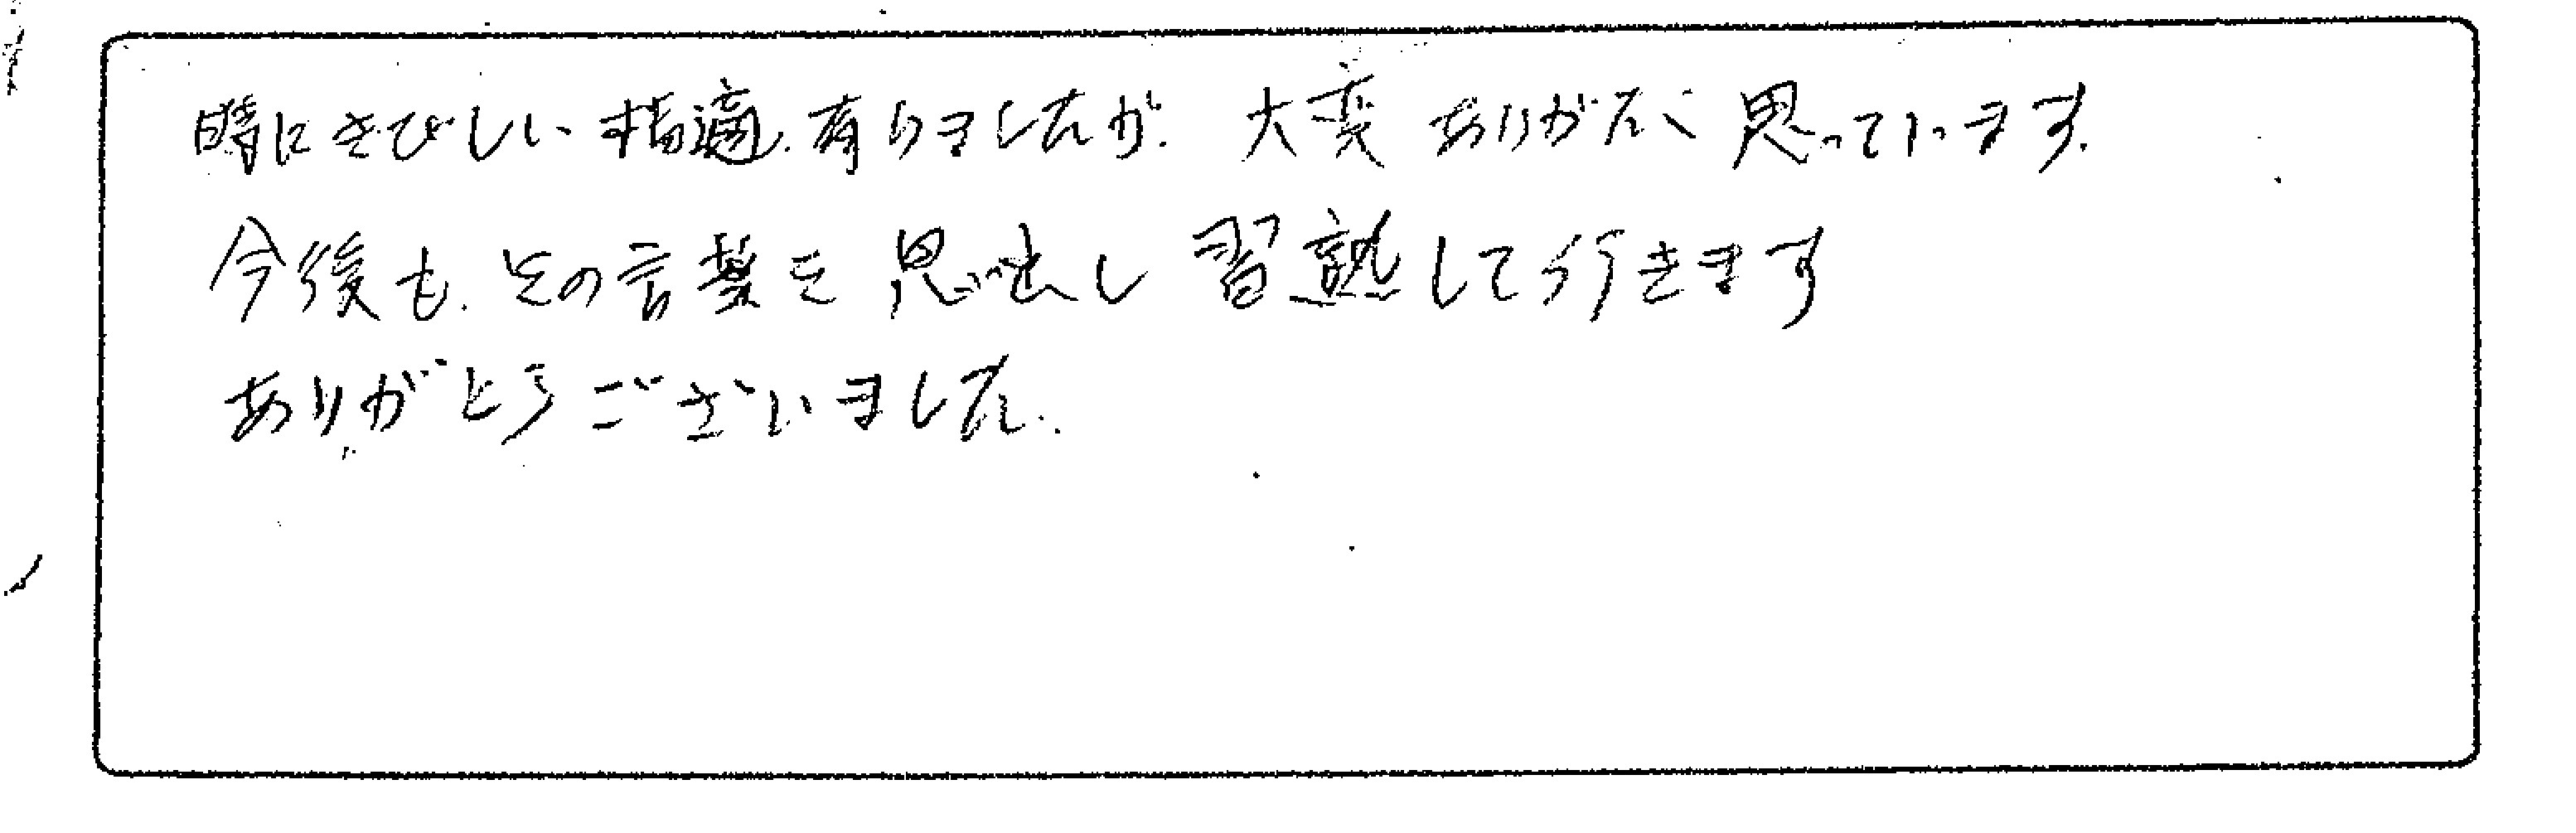 時にきびしい指適有りましたが、大変ありがたく思っています。
今後も、その言葉を思い出し習熟して行きます
ありがとうございました。